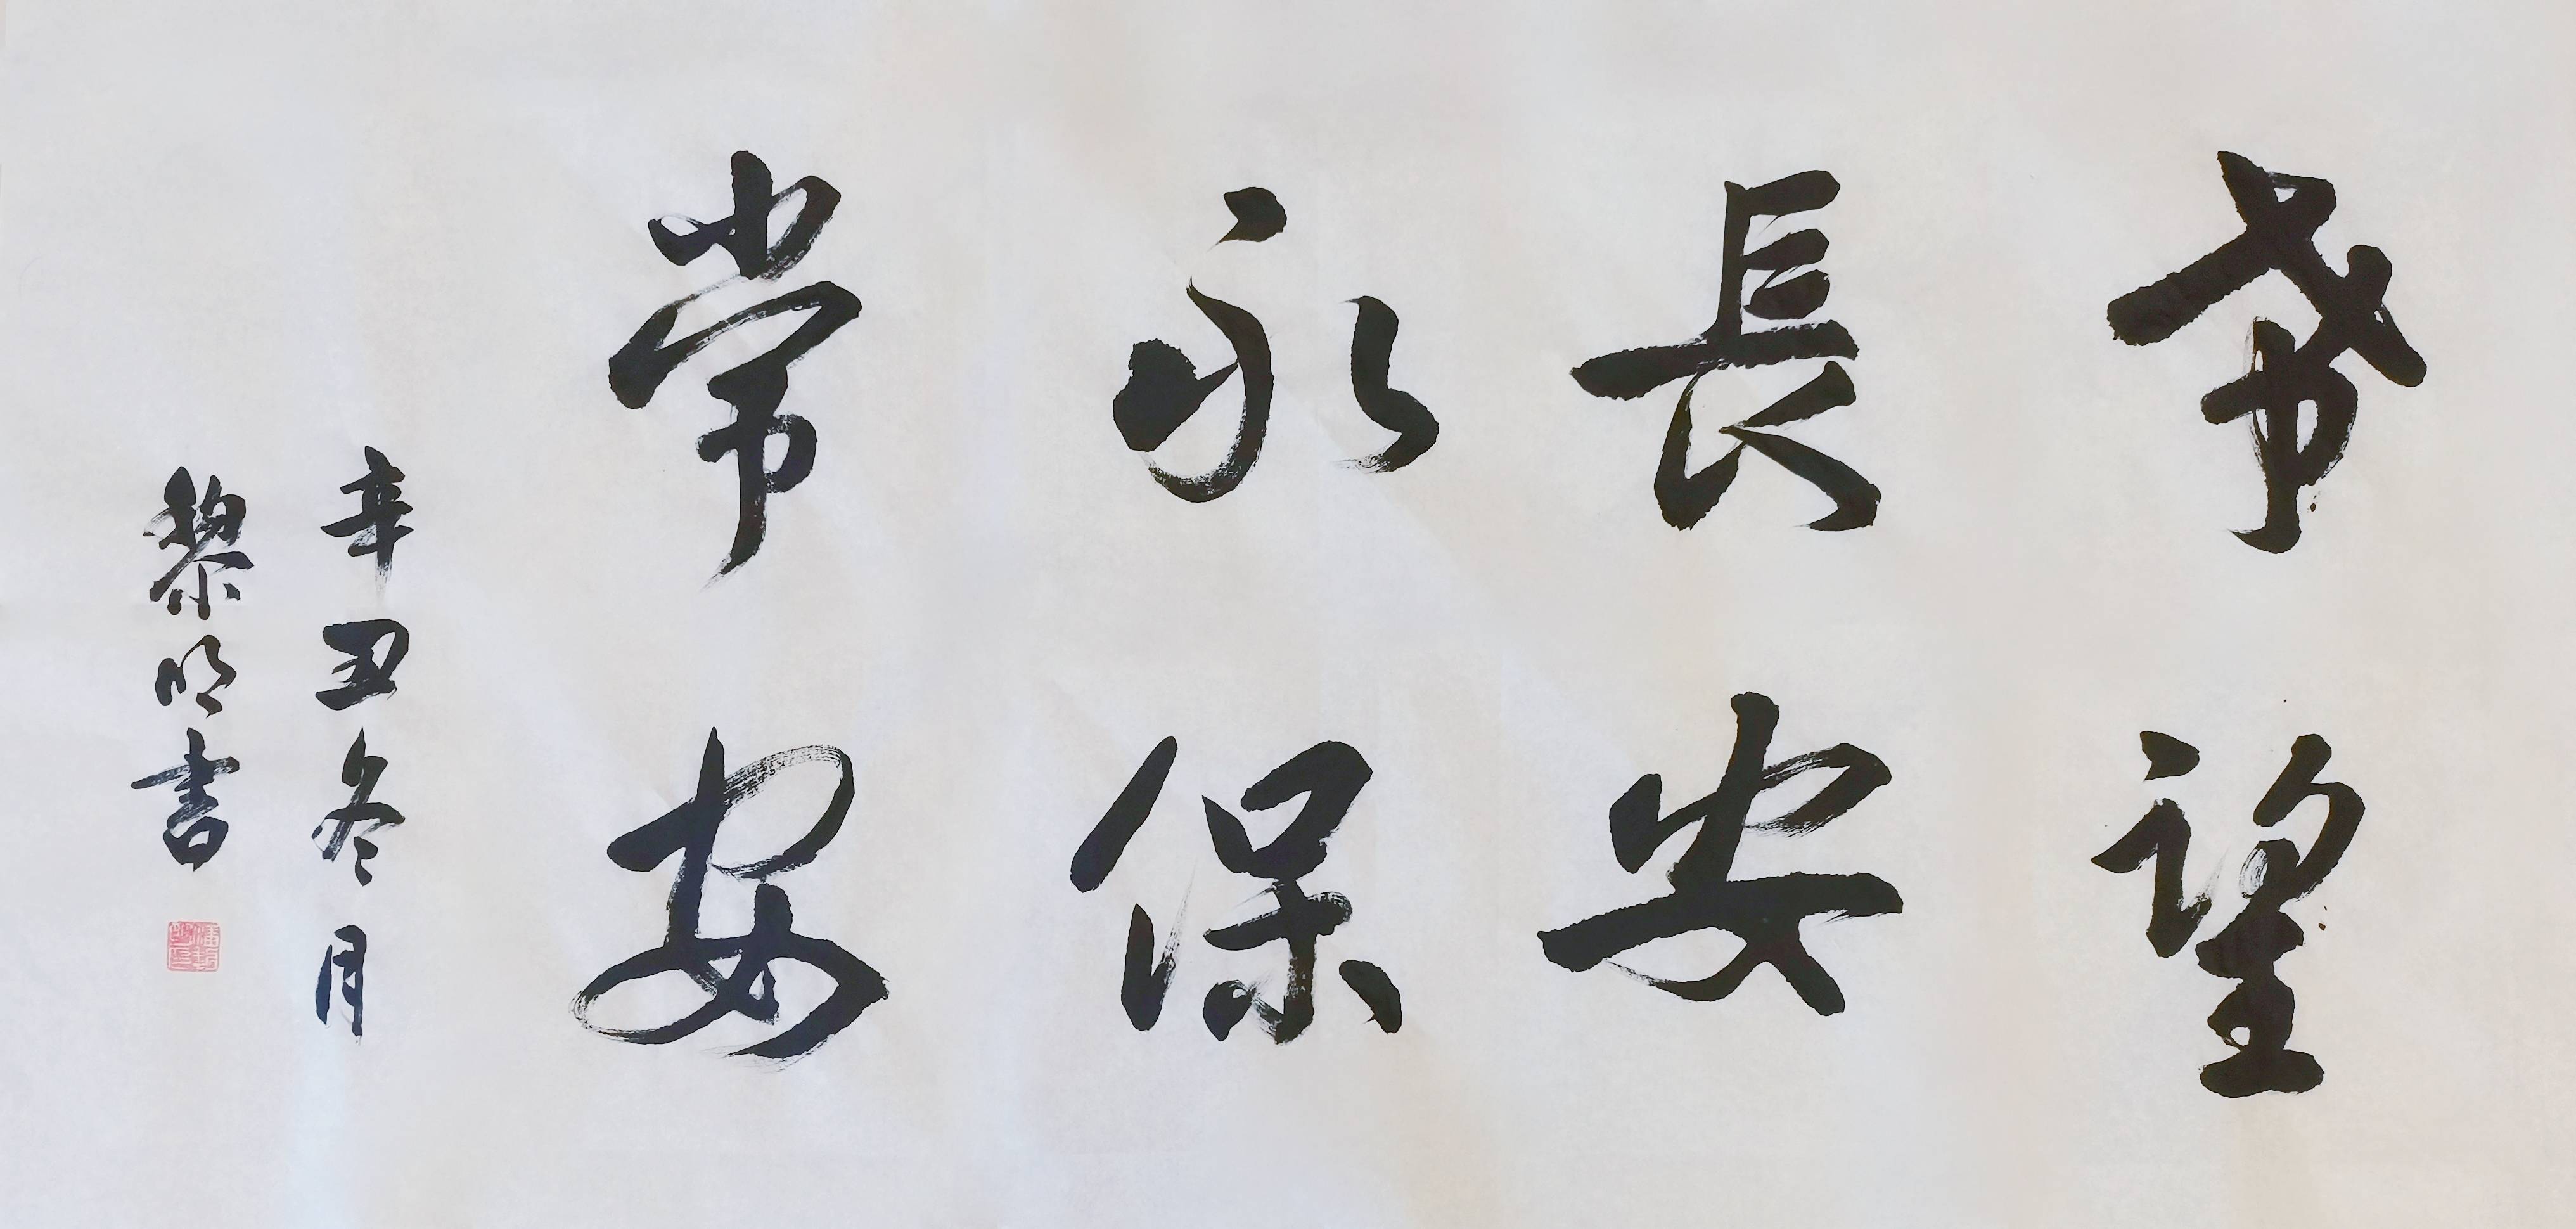 希望
長安
永保
常安
辛丑冬月
黎明書